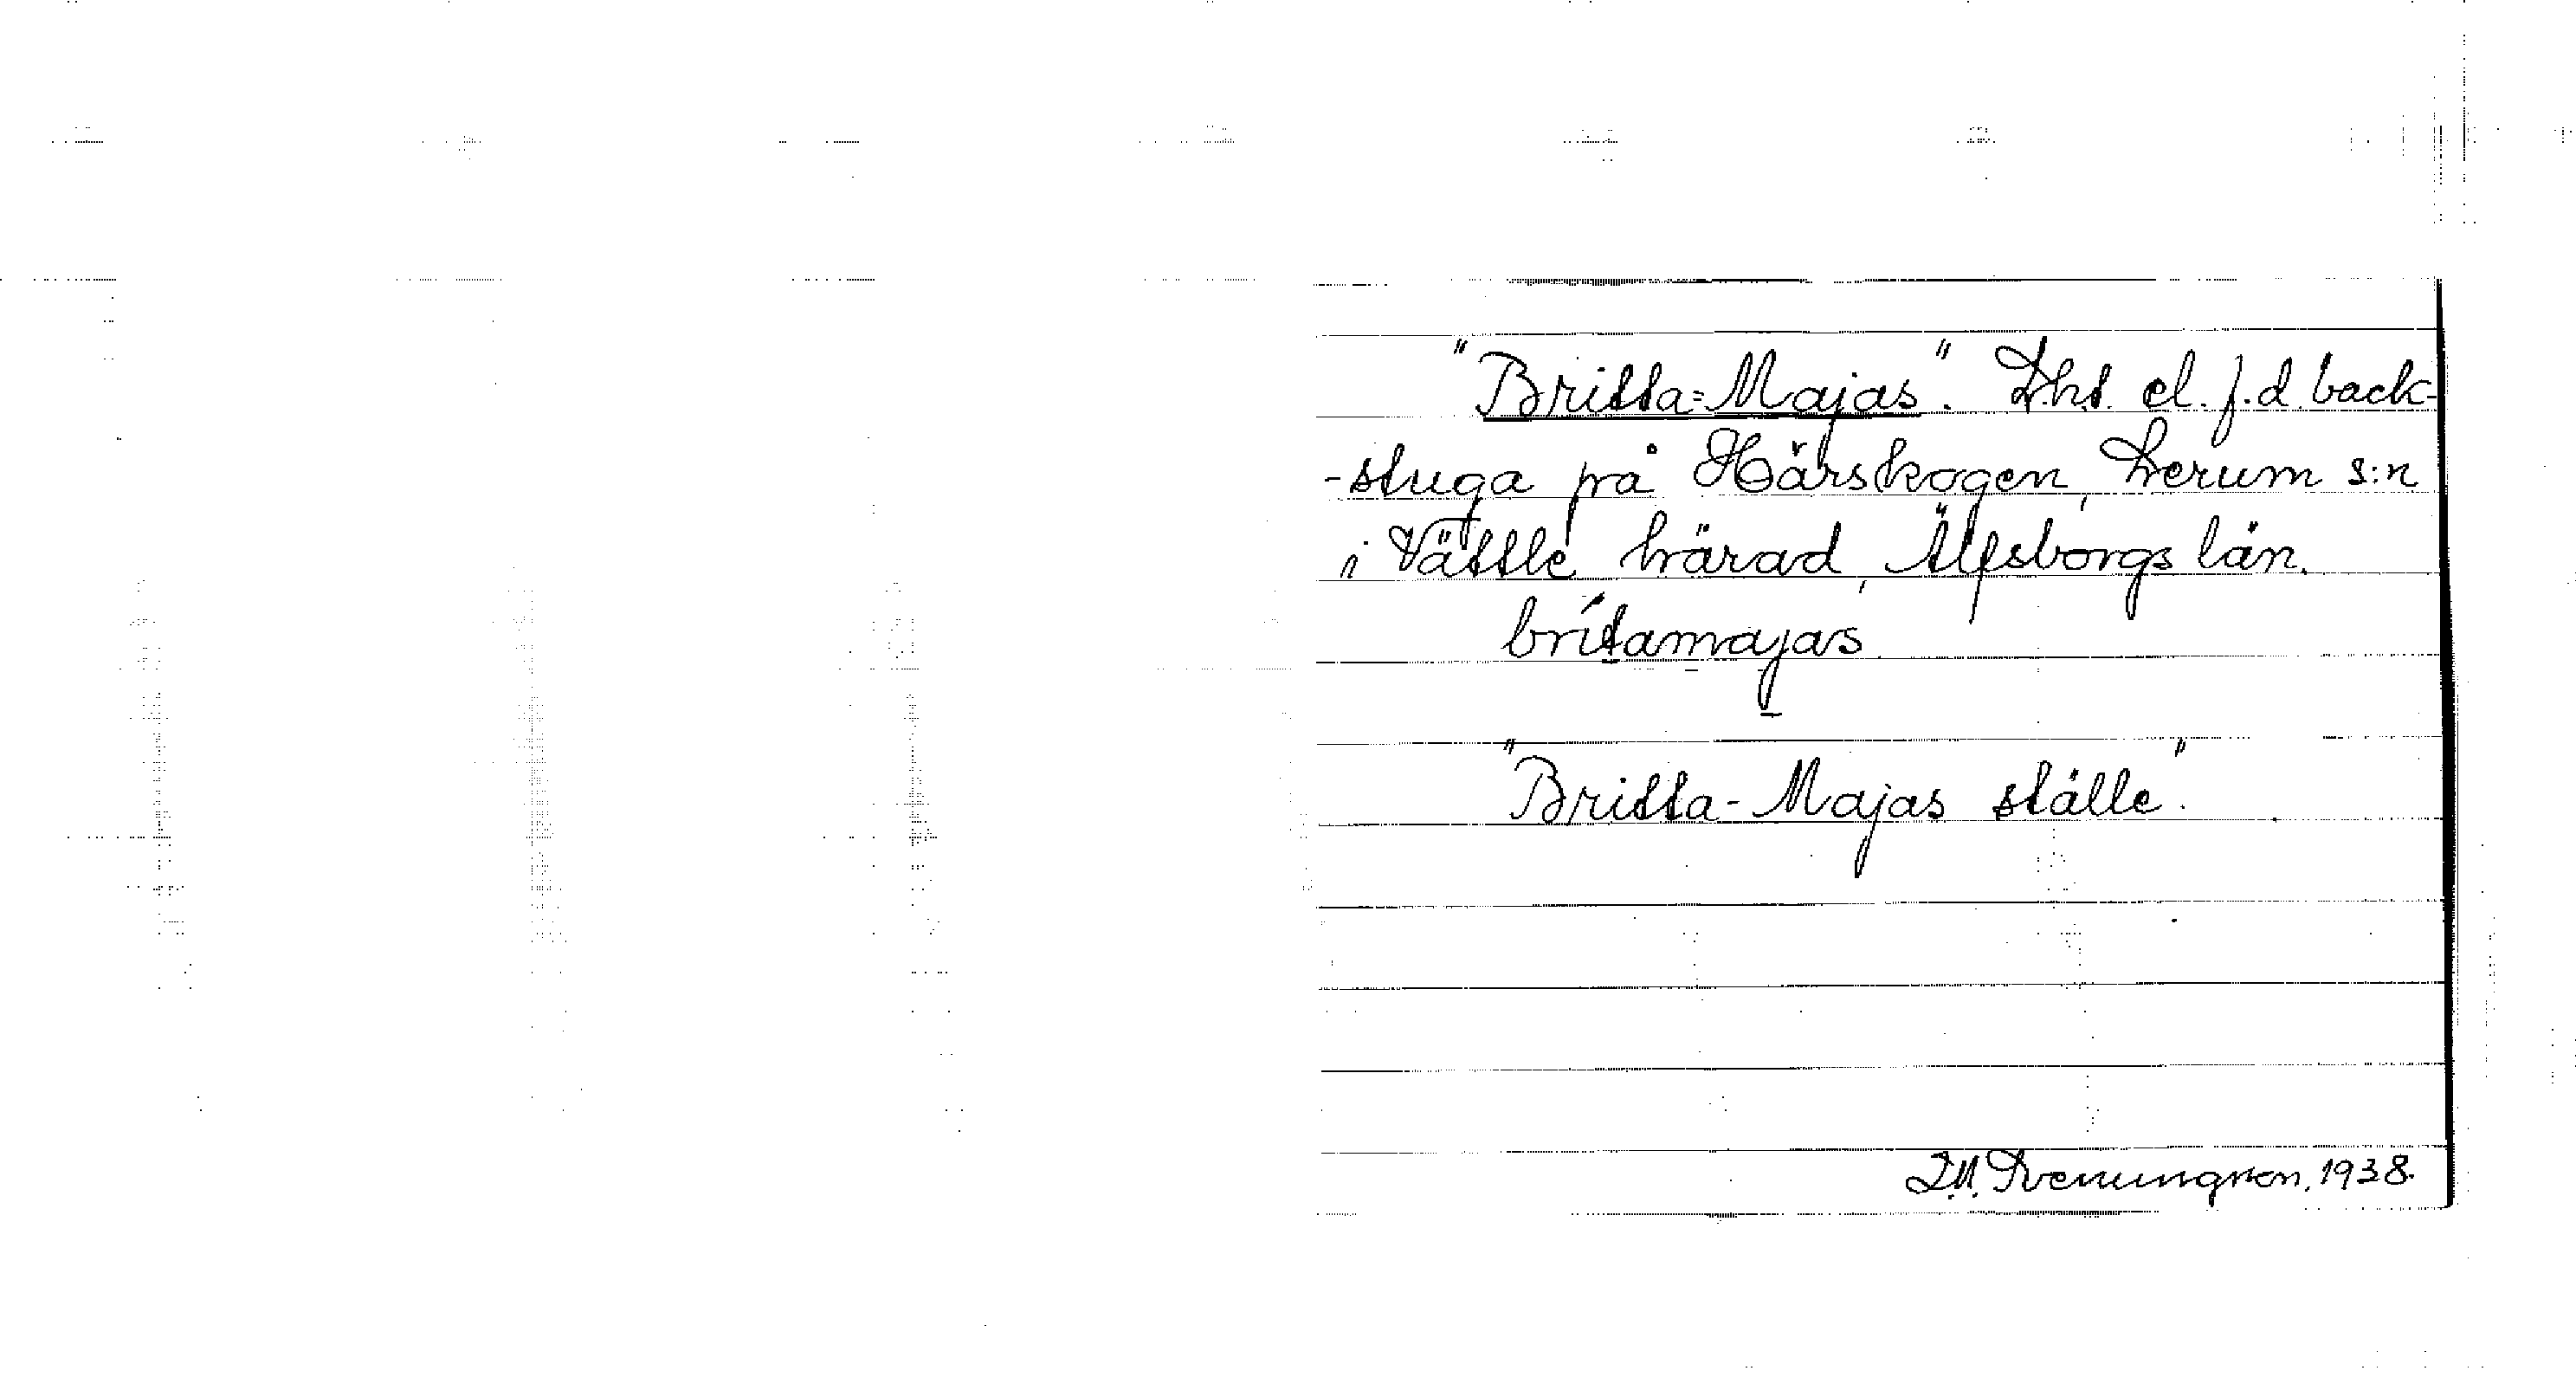 "Britta=Majas". Lht. el. f.d. back-
-stuga på Härskogen, Lerum s:n
i Vättle härad, Älfsborgs län.
britamajas
"Britta-Majas ställe".
Svenungson, 1938.